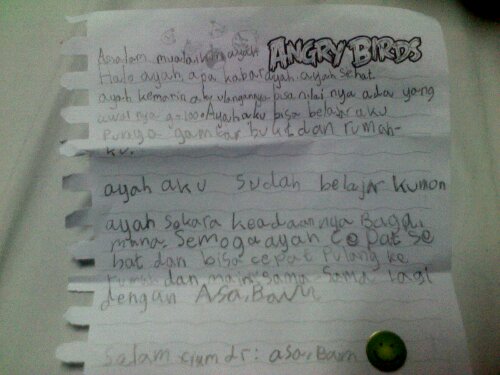 Asalam mualaikum ayah
ANGRY BIRDS
Halo ayah, apa kabar ayah. ayah sehat
ayah kemarin aku ulangannya bisa nilai nya ada yang
awal nya 90.100. Ayah aku bisa belajar aku
punya gambar bukit dan rumah-
ku.
ayah aku sudah belajar kumon
ayah sekara keadaannya Bagai
mana. Semoga ayah cepat se
hat dan bisa cepat pulang ke
rumah dan main sama-sama lagi
dengan Asa, Bam
Salam cium dr: asa, Bam